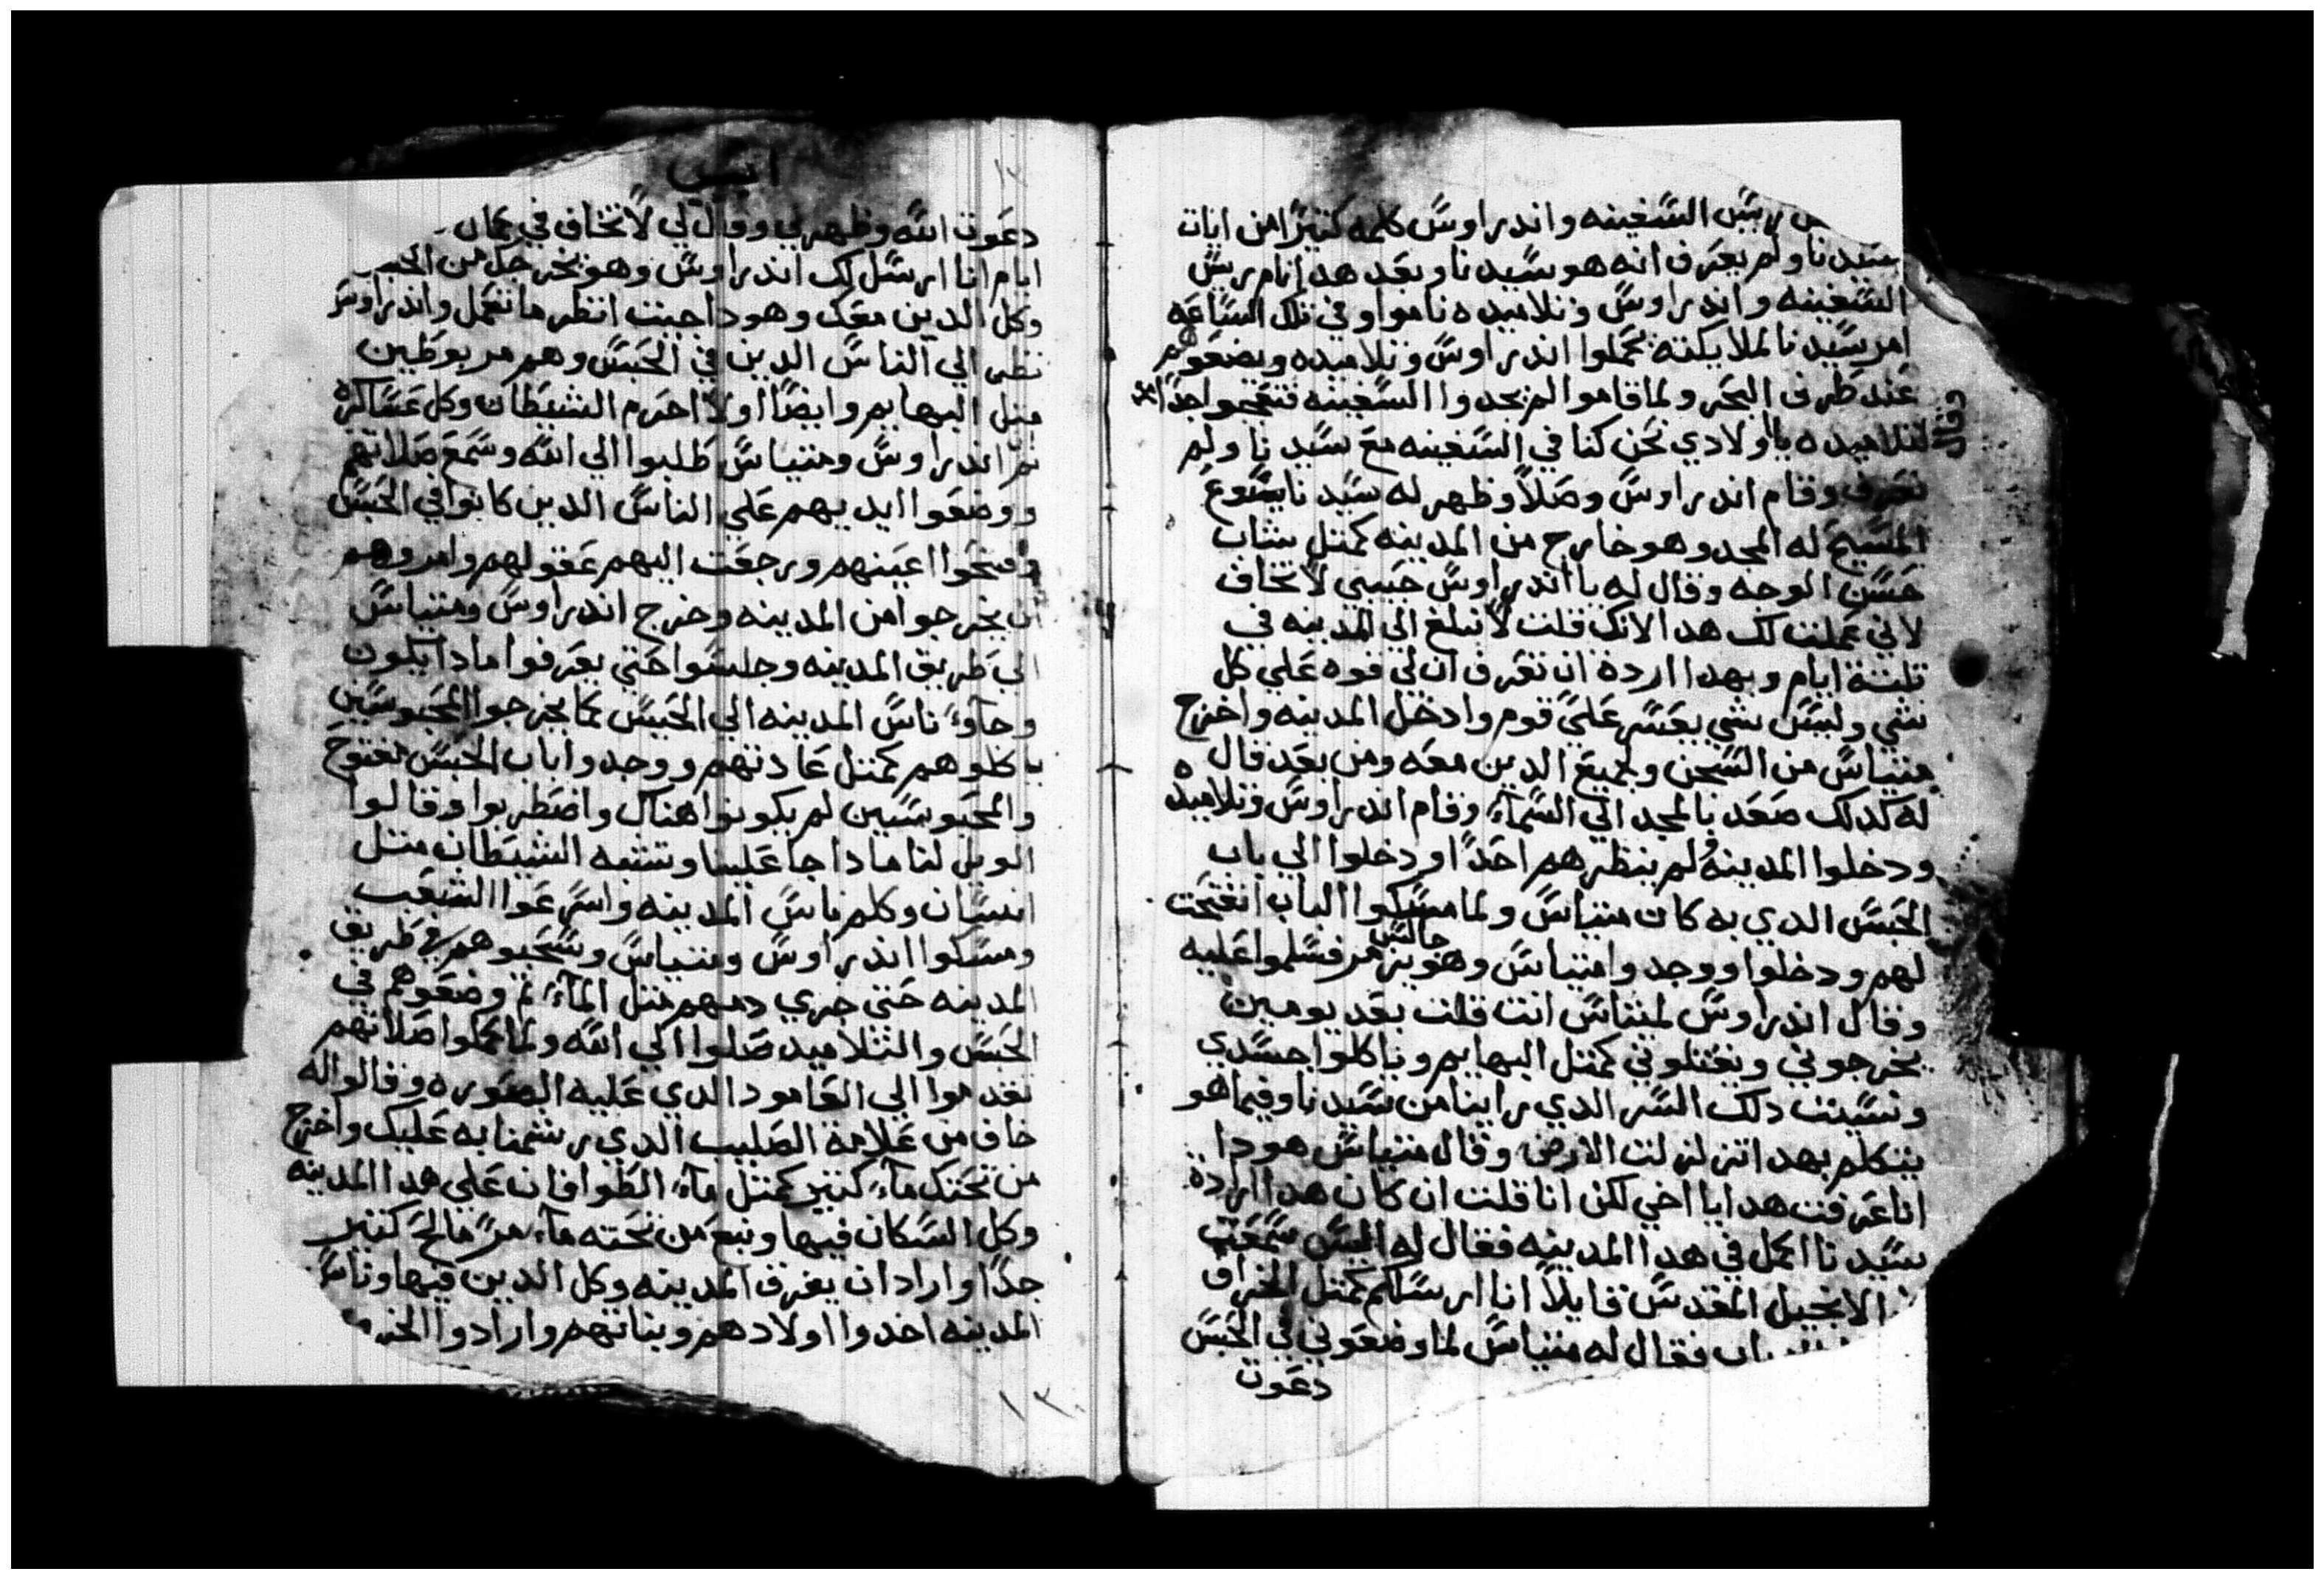 ريس السفينه واندراوس كلمه كتيرًا من ايات
سيدنا ولم يعرف انه هو سيدنا وبعد هدا نام ريس
السفينه واندراوس وتلاميده ناموا وفي تلك الساعه
امر سيدنا لملايكته يحملوا اندراوس وتلاميده ويضعوهم
عند طرف البحر ولما قاموا لم يجدوا السفينه فتعجبوا جدًا
وقال
لتلاميده يا اولادي نحن كنا في السفينه مع سيدنا ولم
نعرف وقام اندراوس وصلا وظهر له سيدنا يسوع
المسيح له المجد وهو خارج من المدينه كمتل شاب
حسن الوجه وقال له يا اندراوس حبيبي لا تخاف
لاني عملت لك هدا لانك قلت لا نبلغ الي المدينه في
تلتة ايام وبهدا اردة ان تعرف ان لي قوه علي كل
شي وليس شي يعسر علي قوم وادخل المدينه واخرج
متياس من السجن وجميع الدين معه ومن بعد قال
له كدلك صعد بالمجد الي السماء وقام اندراوس وتلاميده
ودخلوا المدينه ولم ينظرهم احدًا ودخلوا الي باب
الحبس الدي به كان متياس ولما مسكوا الباب انفتحت
جالس
لهم ودخلوا ووجدوا متياس وهو يزمر فسلموا عليه
وقال اندراوس لمتياس انت قلت بعد يومين
يخرجوني ويقتلوني كمتل البهايم وياكلوا جسدي
ونسيت دلك السر الدي راينا من سيدنا وفيما هو
يتكلم بهدا تزلزلت الارض وقال متياس هودا
انا عرفت هدا يا اخي لكن انا قلت ان كان هدا ارادة
سيدنا اكمل في هدا المدينه فقال له اليس سمعت
الانجيل المقدس قايلاً انا ارسلكم كمتل الخراف
فقال له متياس لما وضعوني في الحبس
دعوت
دعوت الله وظهر لي وقال لي لا تخاف في تمان
ايام انا ارسل لك اندراوس وهو يخرجك من الحبس
وكل الدين معك وهودا جيت انظر ما تعمل واندراوس
نظر الي الناس الدين في الحبس وهم مربوطين
متل البهايم وايضًا اولا احرم الشيطان وكل عساكره
تم اندراوس ومتياس طلبوا الي الله وسمع صلاتهم
ووضعوا ايديهم علي الناس الدين كانوا في الحبس
وفتحوا اعينهم ورجعت اليهم عقولهم وامروهم
ان يخرجوا من المدينه وخرج اندراوس ومتياس
الي طريق المدينه وجلسوا حتي يعرفوا مادا يكون
وجاو ناس المدينه الي الحبس كما يخرجوا المحبوسين
ياكلوهم كمتل عادتهم ووجدوا باب الحبس مفتوح
والمحبوسين لم يكونوا هناك واضطربوا وقالوا
الويل لنا مادا جا علينا وتشبه الشيطان متل
انسان وكلم ناس المدينه واسرعوا الشعب
ومسكوا اندراوس ومتياس وسحبوهم في طريق
المدينه حتي جري دمهم متل الماء تم وضعوهم في
الحبس والتلاميد صلوا الي الله ولما كملوا صلاتهم
تقدموا الي العامود الدي عليه الصوره وقالوا له
خاف من علامة الصليب الدي رشمنا به عليك واخرج
من تحتك ماء كتير كمتل ماء الطوافان علي هدا المدينه
وكل السكان فيها ونبع من تحته ماء مرّ مالح كتير
جدًا واراد ان يغرق المدينه وكل الدين فيها وناس
المدينه اخدوا اولادهم وبناتهم وارادوا
١٣